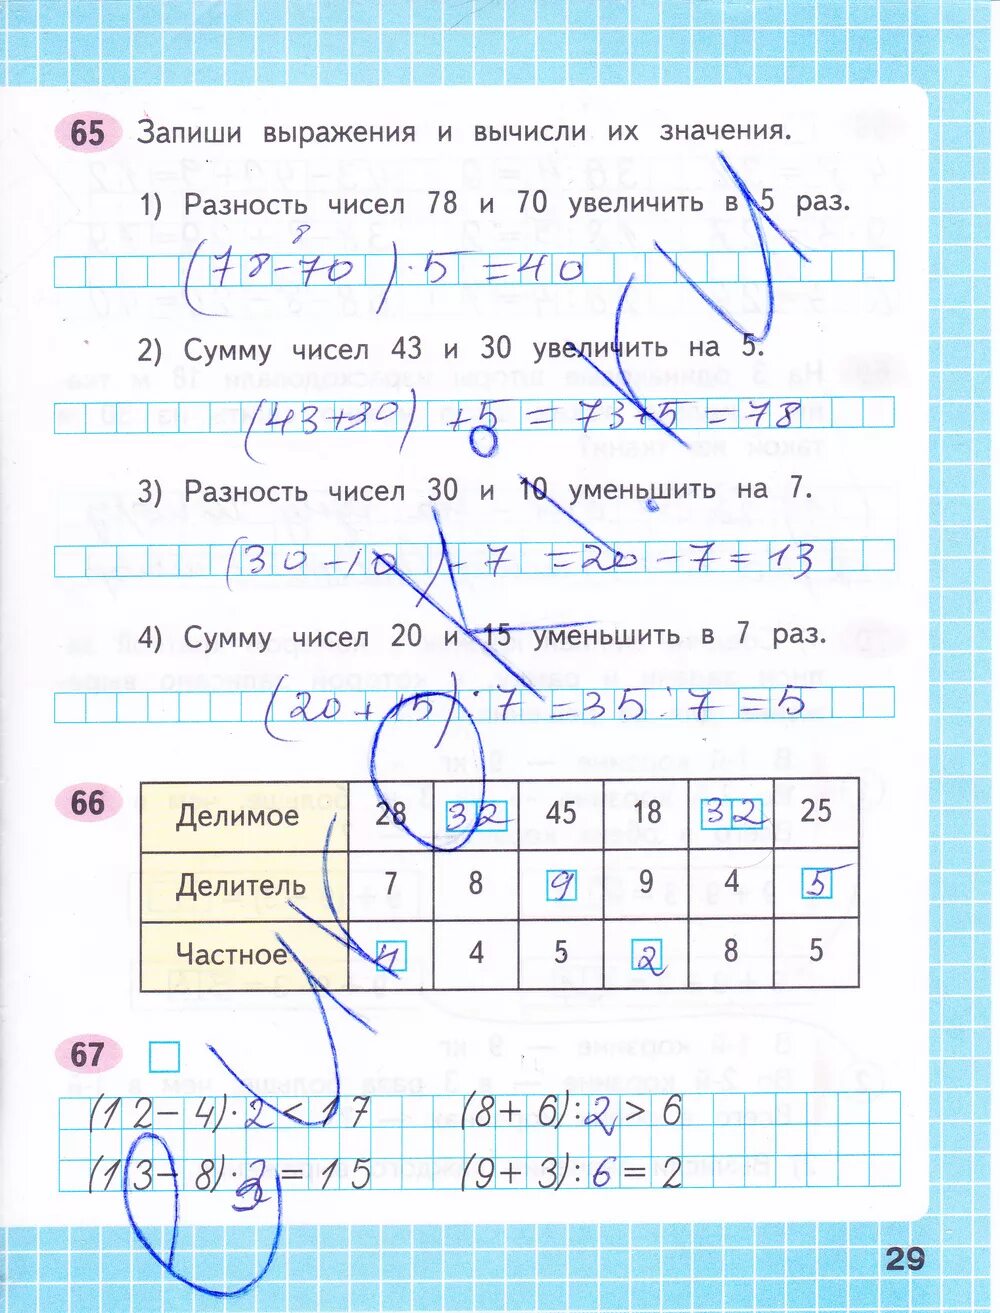 65 Запиши выражения и вычисли их значения.
1) Разность чисел 78 и 70 увеличить в 5 раз.
8
(78-70)·5=40
2) Сумму чисел 43 и 30 увеличить на 5.
(43+30)+5=73+5=78
3) Разность чисел 30 и 10 уменьшить на 7.
(30-10)-7=20-7=13
4) Сумму чисел 20 и 15 уменьшить в 7 раз.
(20+15):7=35:7=5
66 Делимое 28 32 45 18 32 25
Делитель 7 8 9 9 4 5
Частное 4 4 5 2 8 5
67
(12-4)·2<17 (8+6):2>6
(13-8)·3=15 (9+3):6=2
29